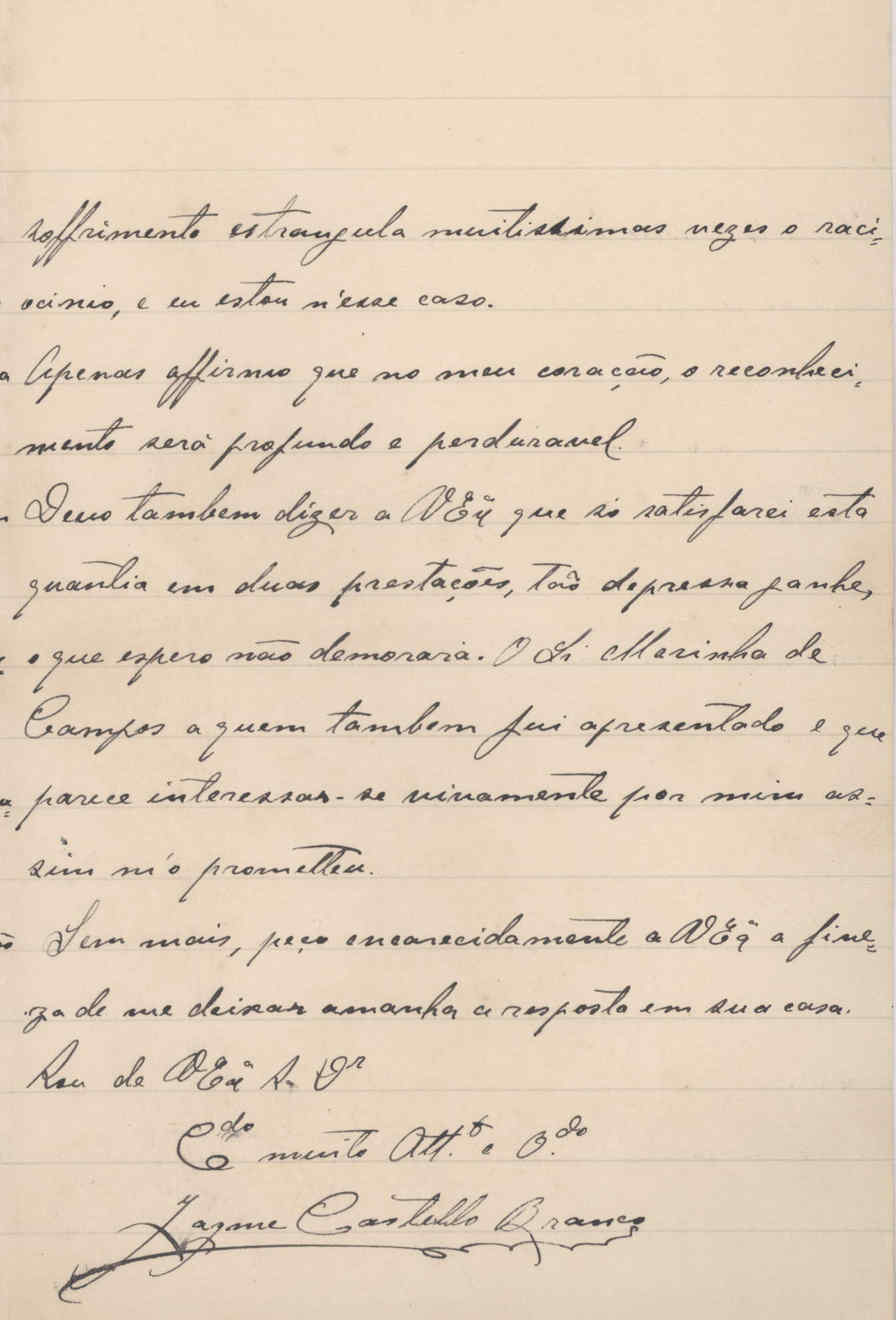 soffrimento estrangula muitissimas vezes o raci=
ocinio, e eu estou n'esse caso.
Apenas affirmo que no meu coração, o reconheci=
mento será profundo e perduravel.
Devo tambem dizer a V Exª que só satisfarei esta
quantia em duas prestações, tão depressa ganhe,
o que espero não demorará. O Sr Marinha de
Campos a quem tambem fui apresentado e que
parece interessar-se vivamente por mim as=
sim m'o prometteu.
Sem mais, peço encarecidamente a V Exª a fine=
za de me deixar amanhã a resposta em sua casa.
Sou de V Exª Sr Dr
Cdo muito Att.º e O.do
Jayme Castello Branco